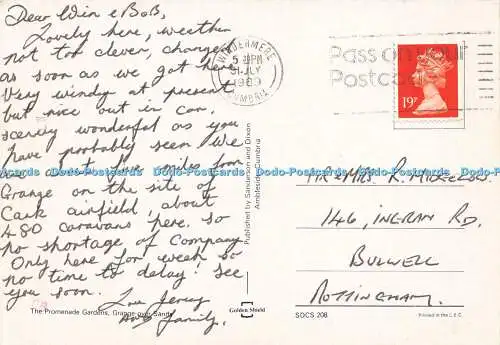 Dear Win & BoB,
Lovely here, weather
not too clever, changed
as soon as we got here
Very windy at present
but nice out in car,
scenery wonderful as you
have probably seen. We
are about five miles from
Grange on the site of
Cark airfield, about
480 caravans here. So
no shortage of Company
Only here for week so
no time to delay! See
you soon.
Love Jerry
and family.
The Promenade Gardens, Grange-over-Sands
WINDERMERE
5 PM
31 JLY
1989
CUMBRIA
Pass on your
Postcode
19P
MR & MRS. R.
146, INGRAM RD.
BULWELL
NOTTINGHAM.
Published by Sanderson and Dixon
Ambleside, Cumbria
Golden Shield
SDCS 208
Printed in the E.E.C.
Dodo-Postcards Dodo-Postcards Dodo-Postcards Dodo-Postcards Dodo-Postcards Dodo-Postcards